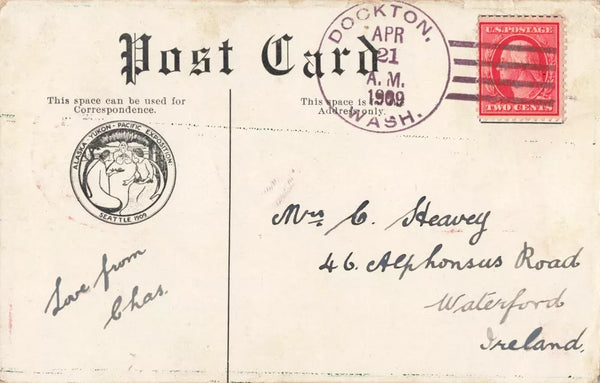 Post Card
DOCKTON,
APR
21
A. M.
1909
WASH.
U.S. POSTAGE
TWO CENTS
This space can be used for
Correspondence.
This space is
Address only.
ALASKA · YUKON · PACIFIC EXPOSITION
SEATTLE 1909
Love from
Chas.
Mrs. C. Heavey
46. Alphonsus Road
Waterford
Ireland.